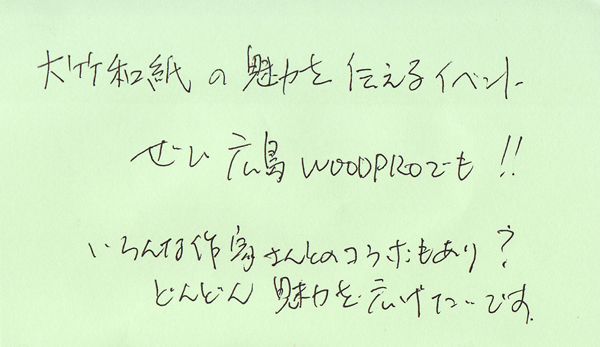 大竹和紙の魅力を伝えるイベント
ぜひ広島WOODPROでも!!
いろんな作家さんとのコラボもあり?
どんどん魅力を広げたいです。